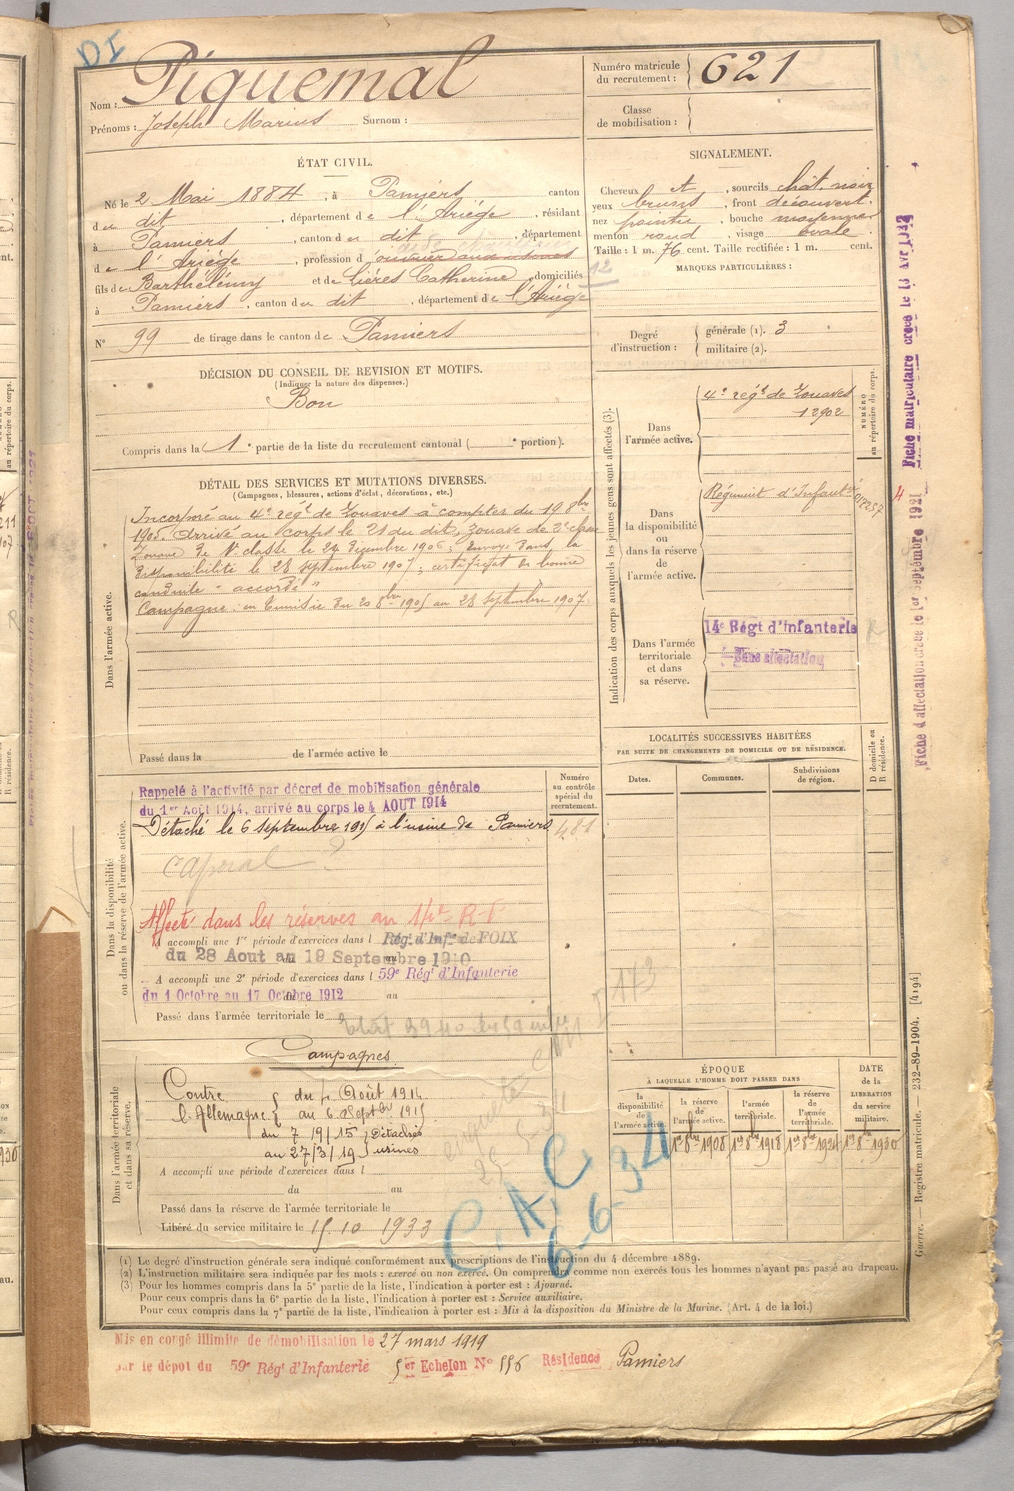 DI
Nom : Piquemal
Prénoms : Joseph Marius Surnom :
Numéro matricule du recrutement : 621
Classe de mobilisation :
ÉTAT CIVIL.
Né le 2 Mai 1884, à Pamiers canton
du dit, département de l'Ariège, résidant
à Pamiers, canton du dit département
de l'Ariège, profession d
fils de Barthélémy et de Lières Catherine domiciliés
à Pamiers, canton du dit, département de l'Ariège
N° 99 de tirage dans le canton de Pamiers
SIGNALEMENT.
Cheveux et, sourcils chât. noir
yeux bruns, front découvert.
nez pointu, bouche moyenne
menton rond, visage ovale.
Taille : 1 m. 76 cent. Taille rectifiée : 1 m. cent.
MARQUES PARTICULIÈRES :
12
Degré d'instruction : générale (1). 3
militaire (2).
DÉCISION DU CONSEIL DE REVISION ET MOTIFS.
(Indiquer la nature des dispenses.)
Bon
Compris dans la 1e partie de la liste du recrutement cantonal ( e portion).
DÉTAIL DES SERVICES ET MUTATIONS DIVERSES.
(Campagnes, blessures, actions d'éclat, décorations, etc.)
Dans l'armée active.
Incorporé au 4e régt de Zouaves à compter du 19 8bre
1905. Arrivé au corps le 21 du dit, Zouave de 2e classe
Zouave de 1e classe le 24 Décembre 1906; Envoyé dans la
disponibilité le 28 septembre 1907; certificat de bonne
conduite "accordé"
Campagne: en Tunisie du 20 8bre 1905 au 28 Septembre 1907.
Passé dans la de l'armée active le
Indication des corps auxquels les jeunes gens sont affectés (3).
NUMÉRO au répertoire du corps.
Dans l'armée active.
4e régt de Zouaves
12902
Dans la disponibilité ou dans la réserve de l'armée active.
Régiment d'Infantie
Dans l'armée territoriale et dans sa réserve.
14e Régt d'Infanterie
Sans affectation
R
LOCALITÉS SUCCESSIVES HABITÉES
PAR SUITE DE CHANGEMENTS DE DOMICILE OU DE RÉSIDENCE.
D domicile ou R résidence.
Dates. Communes. Subdivisions de région.
Dans la disponibilité ou dans la réserve de l'armée active.
Numéro au contrôle spécial du recrutement.
Rappelé à l'activité par décret de mobilisation générale
du 1er Août 1914, arrivé au corps le 4 AOUT 1914
Détaché le 6 septembre 1915 à l'usine de Pamiers
481
Caporal ?
Affecté dans les réserves au
A accompli une 1re période d'exercices dans l Régt d'Infie de FOIX
du 28 Aout au 19 Septembre 1910
A accompli une 2e période d'exercices dans l 59e Régt d'Infanterie
du 1 Octobre au 17 Octobre 1912 au
Passé dans l'armée territoriale le
173
Dans l'armée territoriale et dans sa réserve.
Campagnes
Contre l'Allemagne
du 4 Août 1914
au 6 Septbre 1915
du 7/9/15 Détachés
au 27/3/19 usines
A accompli une période d'exercices dans l
du au
Passé dans la réserve de l'armée territoriale le
Libéré du service militaire le 15.10 1933
C.A.C
6-6-34
ÉPOQUE
À LAQUELLE L'HOMME DOIT PASSER DANS
DATE de la LIBÉRATION du service militaire.
la disponibilité de l'armée active.
la réserve de l'armée active. 1er 8bre 1908
l'armée territoriale. 1er 8bre 1918
la réserve de l'armée territoriale. 1er 8bre 1924
1er 8bre 1930
(1) Le degré d'instruction générale sera indiqué conformément aux prescriptions de l'instruction du 4 décembre 1889.
(2) L'instruction militaire sera indiquée par les mots : exercé ou non exercé. On comprendra comme non exercés tous les hommes n'ayant pas passé au drapeau.
(3) Pour les hommes compris dans la 5e partie de la liste, l'indication à porter est : Ajourné.
Pour ceux compris dans la 6e partie de la liste, l'indication à porter est : Service auxiliaire.
Pour ceux compris dans la 7e partie de la liste, l'indication à porter est : Mis à la disposition du Ministre de la Marine. (Art. 4 de la loi.)
Mis en congé illimité de démobilisation le 27 mars 1919
par le dépôt du 59e Régt d'Infanterie Echelon N° 556 Résidence Pamiers
Fiche matriculaire créée le 13 Avr 1942
Fiche d'affectation créée le 1er septembre 1921
Guerre. — Registre matricule. — 232-89-1904. [4194]